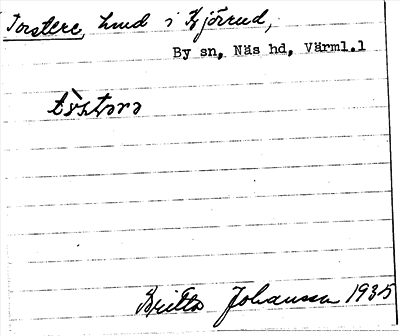 Torstere, hmd i Kjörrud,
By sn, Näs hd, Värml.l
Britta Johansson 1935